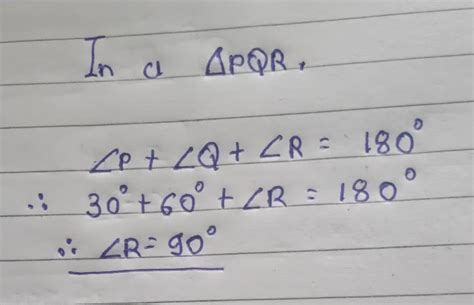 In a △PQR,
∠P + ∠Q + ∠R = 180°
∴ 30° + 60° + ∠R = 180°
∴ ∠R = 90°